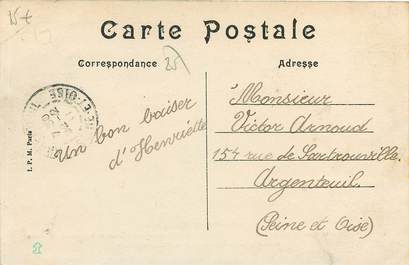 15t
Carte Postale
Correspondance
25
Adresse
Un bon baiser
d'Henriette
Monsieur
Victor Arnoud
154 rue de Sartrouville
Argenteuil.
(Seine et Oise)
ET-OISE
I. P. M. Paris